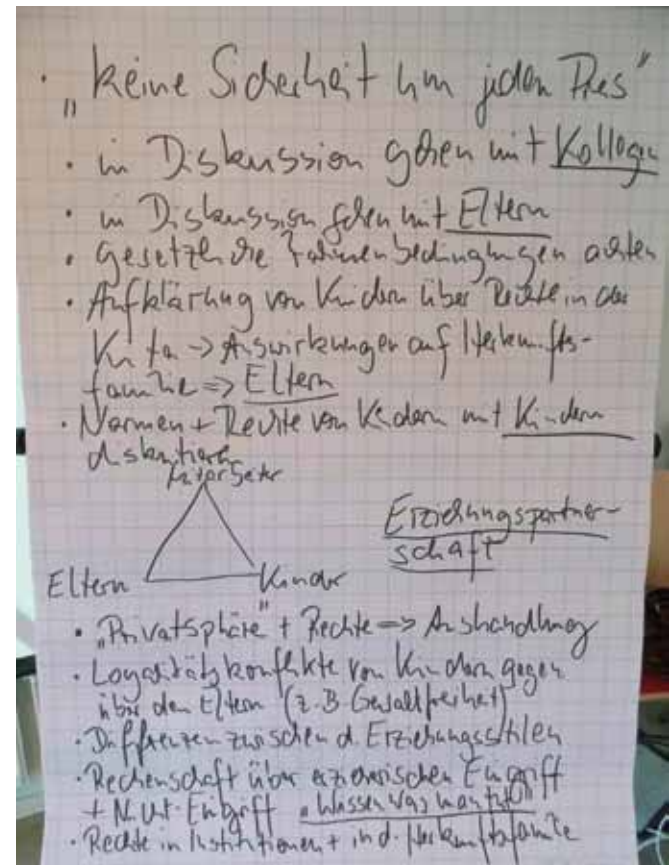 • „keine Sicherheit um jeden Preis"
• in Diskussion gehen mit Kollegen
• in Diskussion gehen mit Eltern
• gesetzliche Rahmenbedingungen achten
• Aufklärung von Kindern über Rechte in der
Kita -> Auswirkungen auf Herkunfts-
familie => Eltern
• Normen + Rechte von Kindern mit Kindern
diskutieren
Mitarbeiter
Erziehungspartner-
schaft
Eltern Kinder
• „Privatsphäre" + Rechte => Aushandlung
• Loyalitätskonflikte von Kindern gegen
über den Eltern (z.B. Gewaltfreiheit)
• Differenzen zwischen d. Erziehungsstilen
• Rechenschaft über erzieherischen Eingriff
+ Nicht-Eingriff „Wissen was man tut"
• Rechte in Institutionen + in d. Herkunftsfamilie